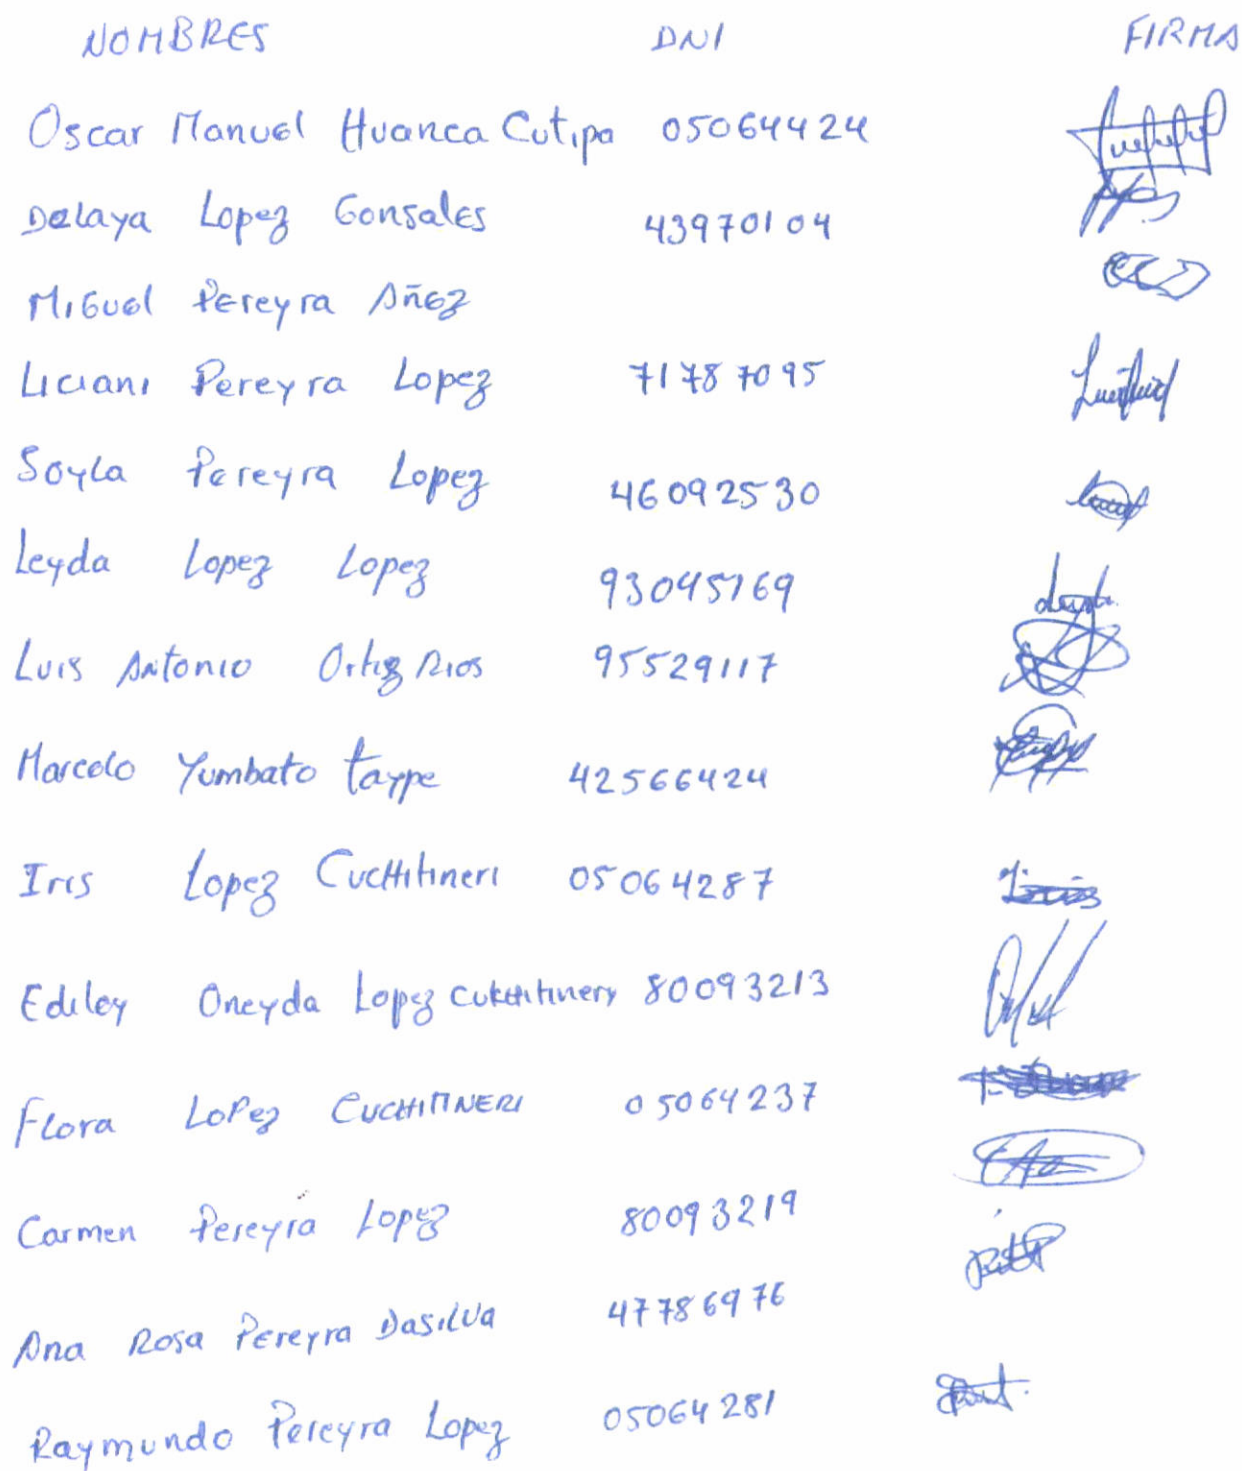 NOMBRES DNI FIRMA
Oscar Manuel Huanca Cutipa 05064424
Delaya Lopez Gonsales 43970104
Miguel Pereyra Añez
Liciani Pereyra Lopez 71787095
Soyla Pereyra Lopez 46092530
Leyda Lopez Lopez 93045769
Luis Antonio Ortiz Rios 95529117
Marcelo Yumbato taype 42566424
Iris Lopez Cuchitineri 05064287
Ediley Oneyda Lopez 80093213
Flora Lopez CUCHITINERI 05064237
Carmen Pereyra Lopez 80093219
Ana Rosa Pereyra Dasilva 47786976
Raymundo Pereyra Lopez 05064281